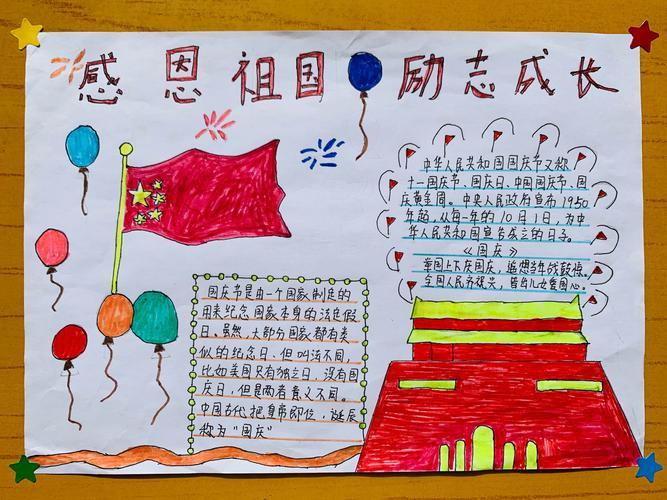 感恩祖国 励志成长
中华人民共和国国庆节又称
十一国庆节、国庆日、中国国庆节、国
庆黄金周。中央人民政府宣布1950
年起,从每一年的10月1日,为中
华人民共和国宣告成立的日子。
《国庆》
举国上下庆国庆,追想当年战鼓惊。
全国人民齐祝兴,皆台儿女爱国心。
国庆节是由一个国家制定的
用来纪念国家本身的法定假
日。虽然,大部分国家都有类
似的纪念日、但叫法不同,
比如美国只有独立日,没有国
庆日,但是两者意义不同。
中国古代把皇帝即位,诞辰
称为“国庆”